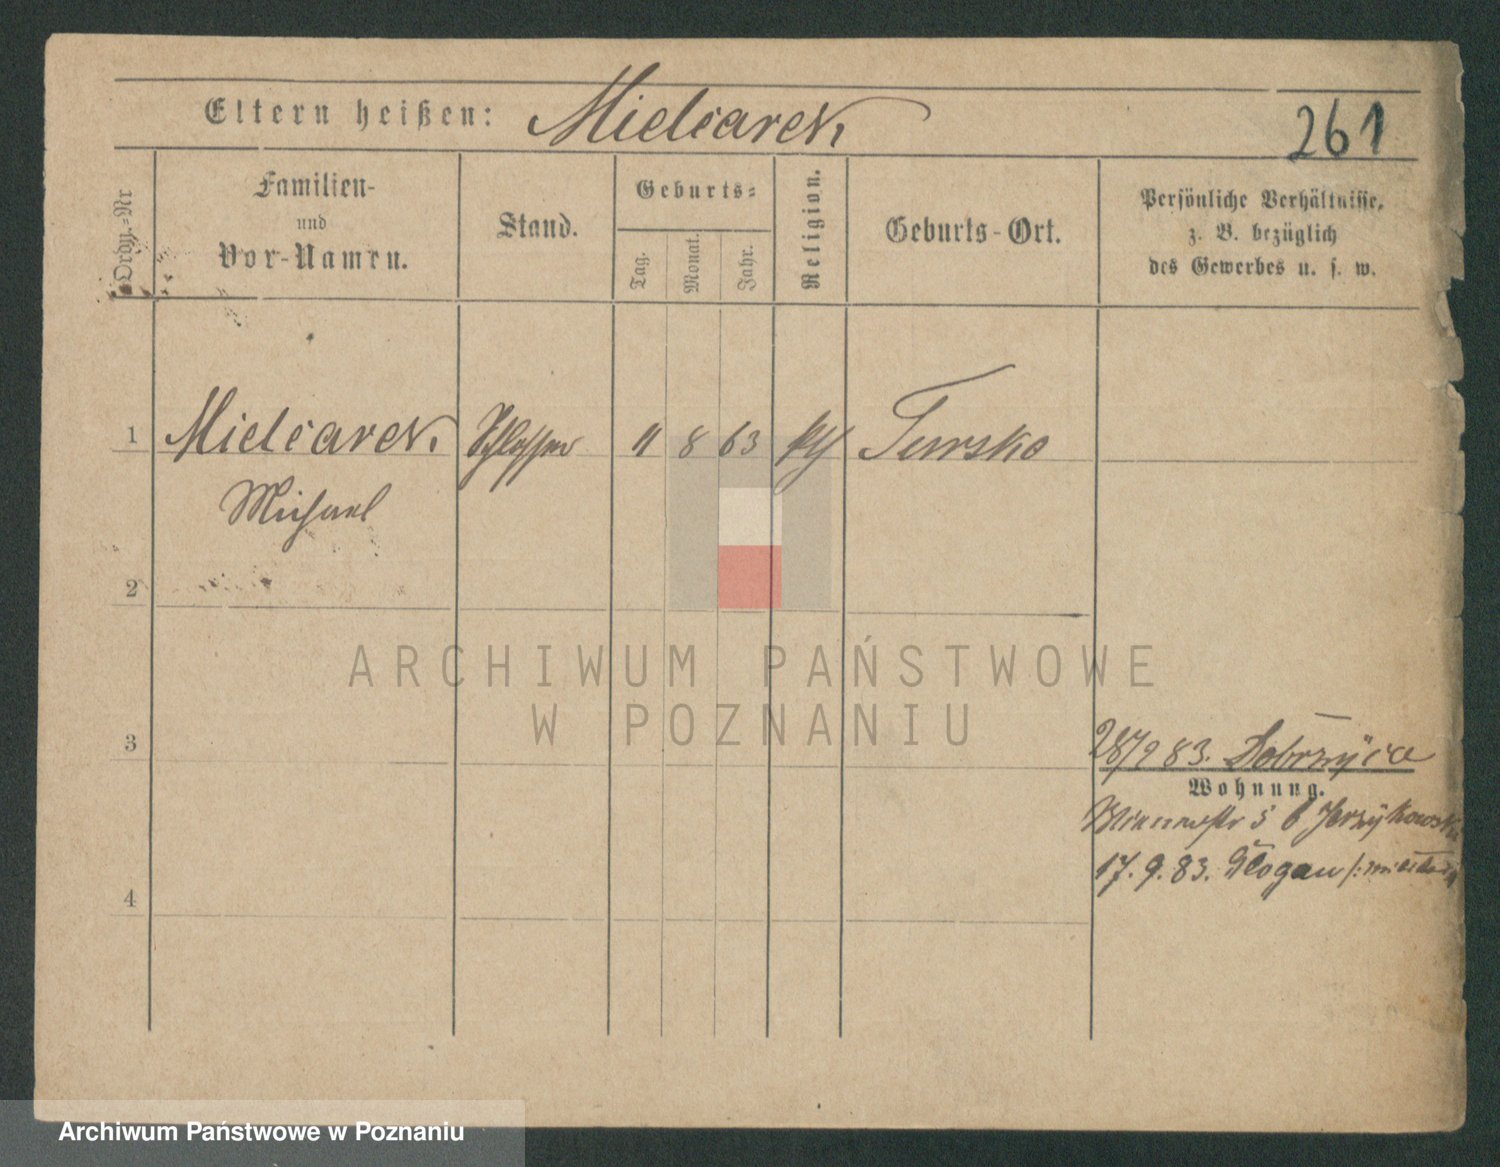 Eltern heißen: Mielcarek
261
Ordn.-Nr
Familien-
und
Vor-Namen.
Stand.
Geburts-
Tag.
Monat.
Jahr.
Religion.
Geburts-Ort.
Persönliche Verhältnisse,
z. B. bezüglich
des Gewerbes u. s. w.
1 Mielcarek Schlosser 11 8 63 kth Tursko
Michael
2
ARCHIWUM PAŃSTWOWE
W POZNANIU
3
28/2 83. Dobrzyca
Wohnung.
5 b Jerzykowski
17. 9. 83. Glogau
4
Archiwum Państwowe w Poznaniu